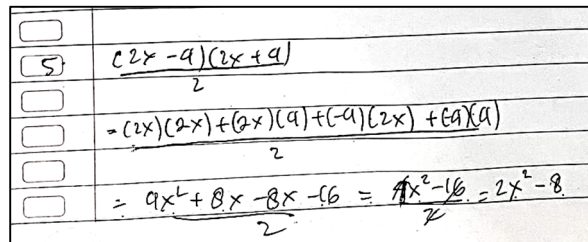 5) (2x - 4)(2x + 4)
2
= (2x)(2x) + (2x)(4) + (-4)(2x) + (-4)(4)
2
= 4x² + 8x - 8x - 16 = 4x² - 16 = 2x² - 8
2 2